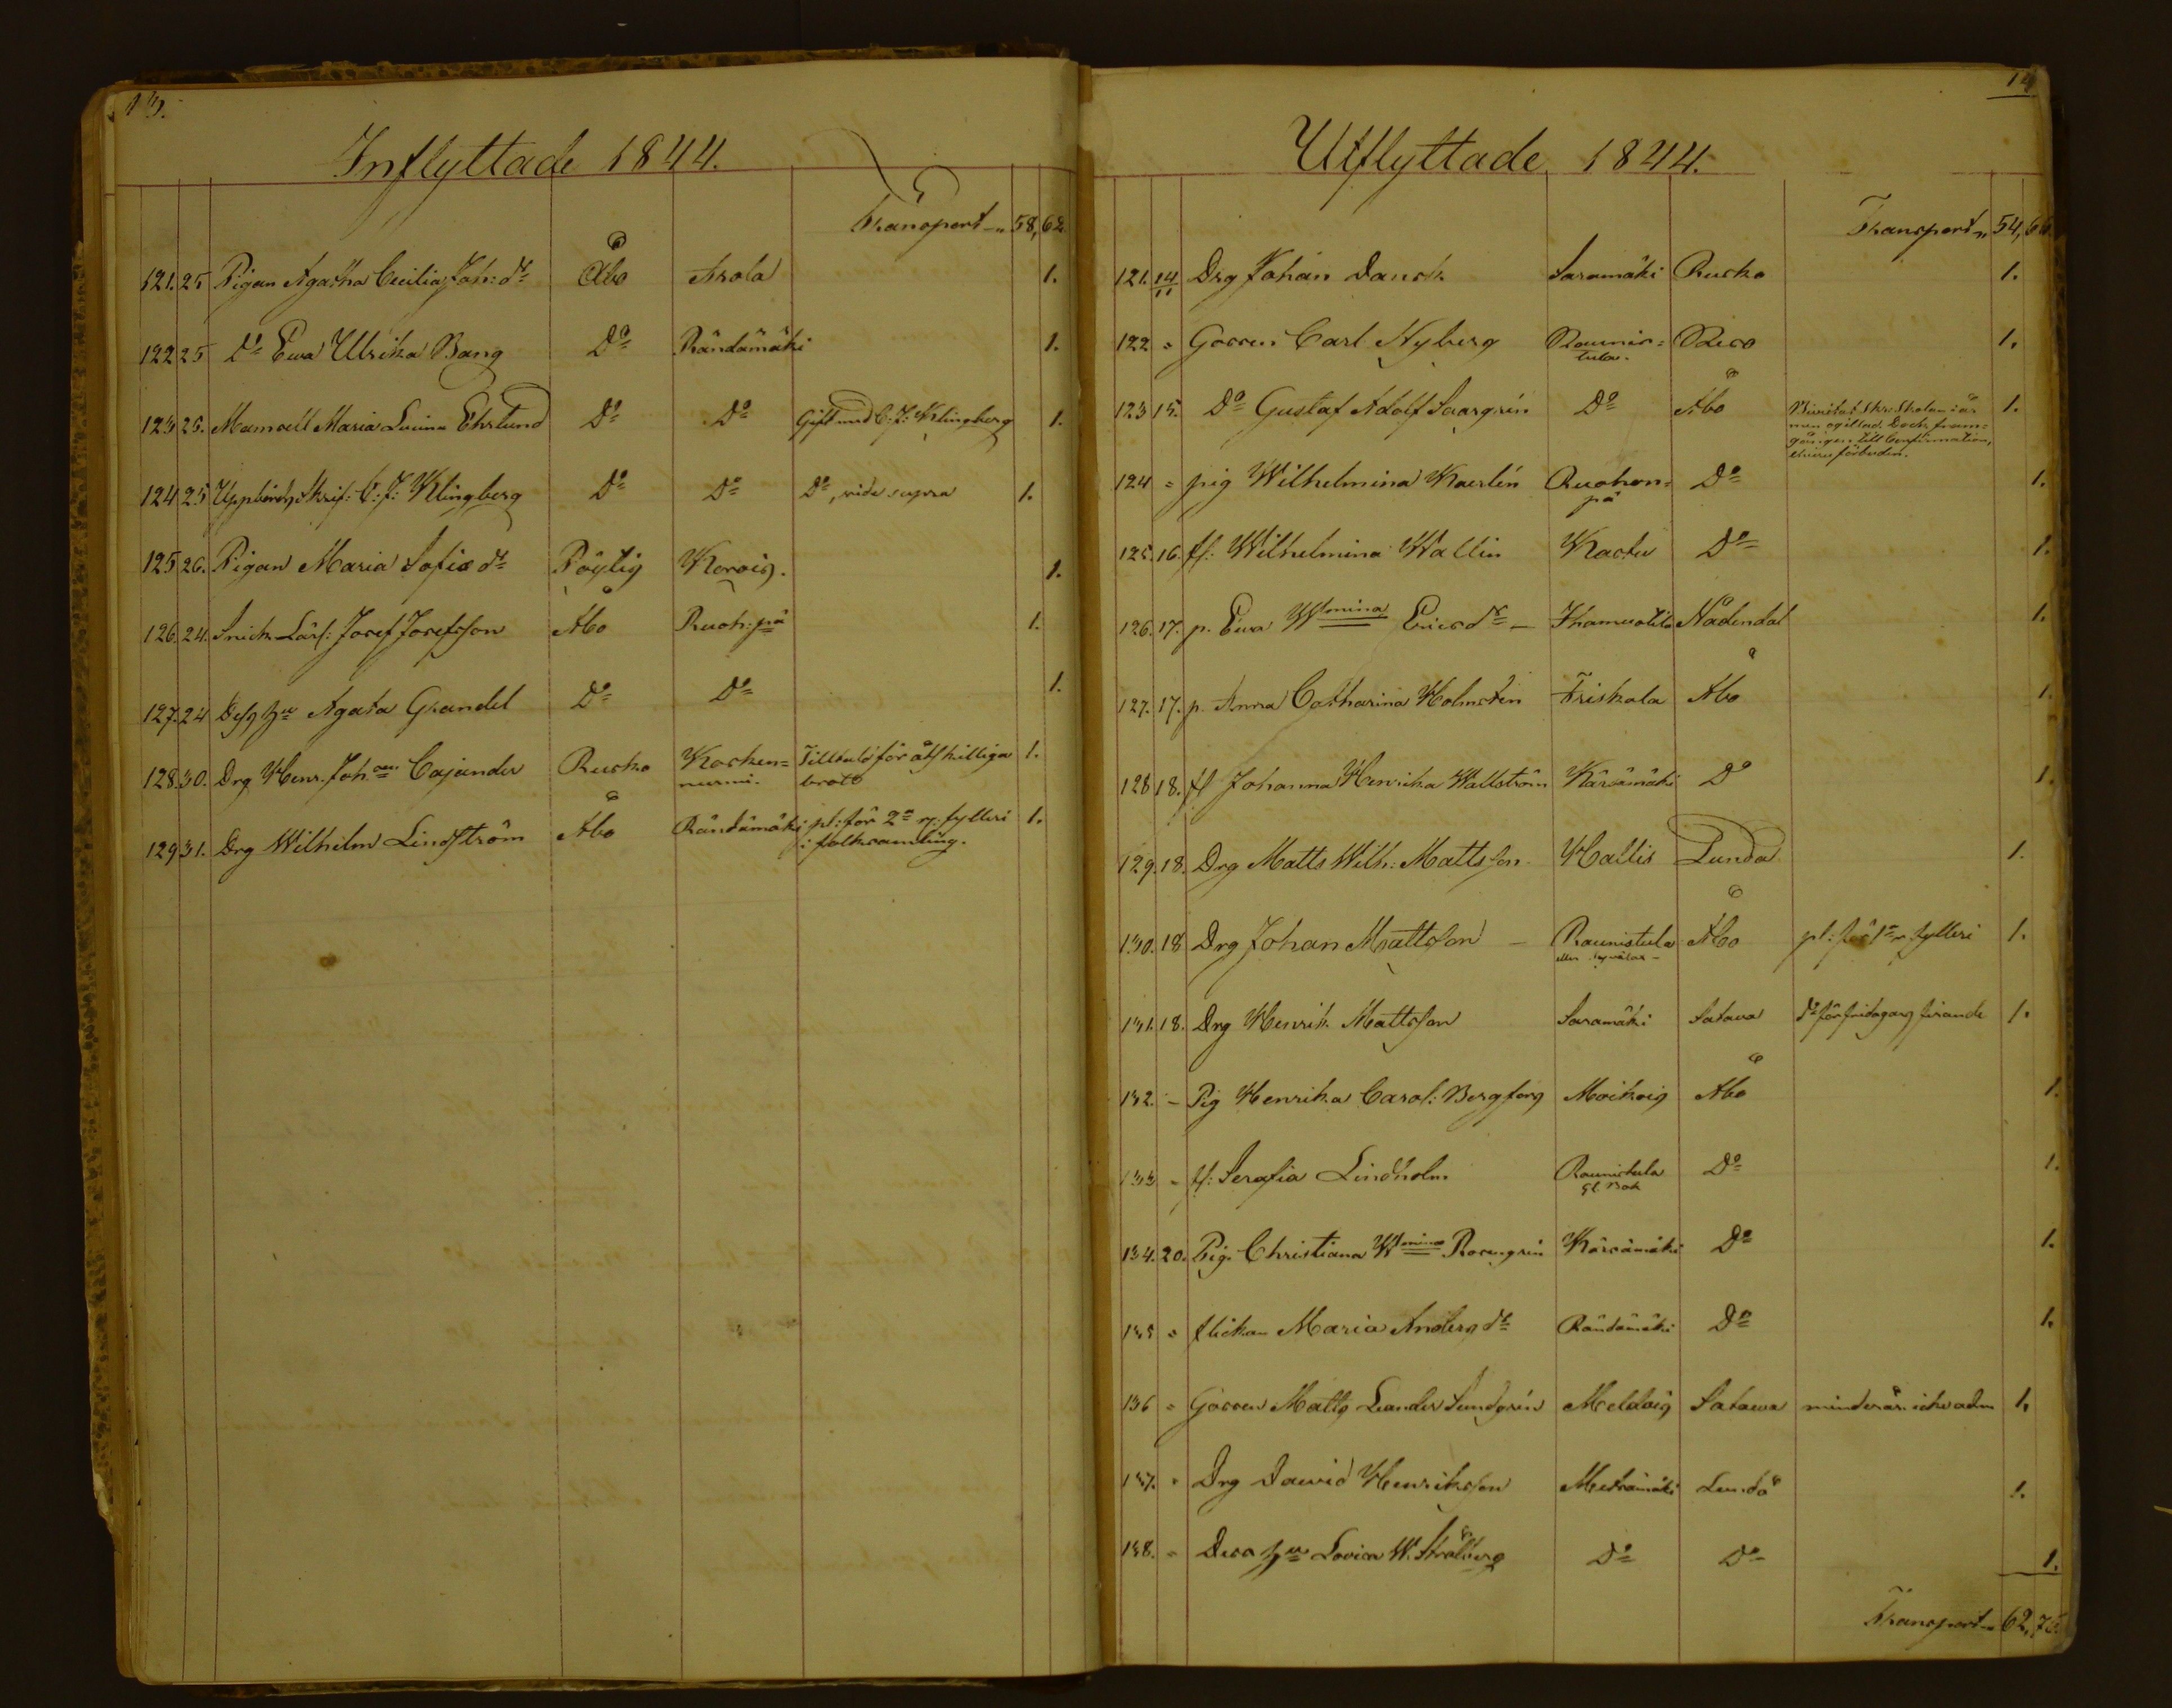 13.
Inflyttade 1844.
Transport 58, 62
121. 25 Pigan Agatha Cecilia Joh: dr Åbo Arola 1.
122 25 Do Ewa Ulrika Bang Do Räntämäki 1.
123 25. Mamsell Maria Lovisa Ehrlund Do Do Gift med C: J: Klingberg 1.
124 25 Uppbörds Skrif: C: J: Klingberg Do Do Do, vide supra 1.
125 26. Pigan Maria Sofia dr Pöytis Korois. 1.
126. 24. Snick Lärl: Josef Josefsson Åbo Ruoh: pä 1.
127. 24 Dess hu Agata Grandel Do Do 1.
128. 30. Drg Henr. Johan Cajander Rusko Kärken= Tilltald för åtskilliga 1.
nurmi. brott
129 31. Drg Wilhelm Lindström Åbo Räntämäki pl: för 2a ry: fylleri 1.
i folksamling.
14
Utflyttade 1844.
Transport 54, 66
121. 14/11 Drg Johan Dansk Saramäki Rusko 1.
122 " Gossen Carl Nyberg Raunis= Reso 1.
tula.
123 15. Do Gustaf Adolf Saargrén Do Åbo 1.
men ogillad. Dock fram=
gången till Confirmation,
förbuden.
124 " pig Wilhelmina Kaerlén Ruohon= Do 1.
pä
125. 16. fl: Wilhelmina Wallin Kastu Do 1.
126. 17. p. Ewa Wmina Ericsdr Ihamuotila Nådendal 1.
127. 17. p. Anna Catharina Holmstén Friskala Åbo 1.
128 18. fl Johanna Henrika Wallström Kärsämäki Do 1.
129. 18. Drg Matts Wilh: Mattsson Hallis Lundo 1.
130. 18 Drg Johan Mattsson Raunistula Åbo pl: för 1a r. fylleri 1.
eller
131. 18. Drg Henrik Mattsson Saramäki Satava do för fridagars firande 1.
132. – Pig Henrika Carol: Bergfors Moikois Åbo 1.
133 " fl: Serafia Lindholm Raunistula Do 1.
134. 20. Pig. Christiana Wmina Rosengrén Kärsämäki Do 1.
135 " flickan Maria Andersdr Räntämäki Do 1.
136 " Gossen Matts Leander Sundgrén Mäldois Satava minderår. icke adm 1.
137. " Drg David Henriksson Metsämäki Lundo 1.
138. " Dess hu Lovisa W. Strålberg Do Do 1.
Transport 62, 76.